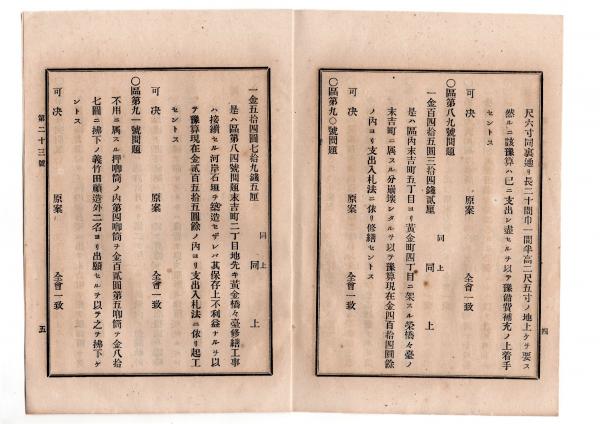 尺六寸同裏通リ長二十間巾一間半高二尺五寸ノ地上ケヲ要ス
然ルニ該豫算ハ已ニ支出シ盡セルヲ以テ豫備費補充ノ上着手
セントス
可决 原案 全會一致
〇區第八九號問題
同上
一金百四拾五圓三拾四錢貳厘 同上
是ハ區内末吉町五丁目ヨリ黃金町四丁目ニ架スル榮橋々臺ノ
末吉町ニ属スル分崩壞シタルヲ以テ豫算現在金四百拾四圓餘
ノ内ヨリ支出入札法ニ依リ修繕セントス
〇區第九〇號問題
四
同上
一金五拾四圓七拾九錢五厘 同上
是ハ區第八四號問題末吉町二丁目地先キ黃金橋々臺修繕工事
ハ接續セル河岸石垣ヲ築造セザレバ其保存上不利益ナルヲ以
テ豫算現在金貳百五拾五圓餘ノ内ヨリ支出入札法ニ依リ起工
セントス
可决 原案 全會一致
〇區第九一號問題
不用ニ属スル押喞筒ノ内第四喞筒ヲ金百貳圓第五喞筒ヲ金八拾
七圓ニ拂下ノ義竹田顧造外二名ヨリ出願セルヲ以テ之ヲ拂下ケ
ントス
可决 原案 全會一致
第二十三號
五